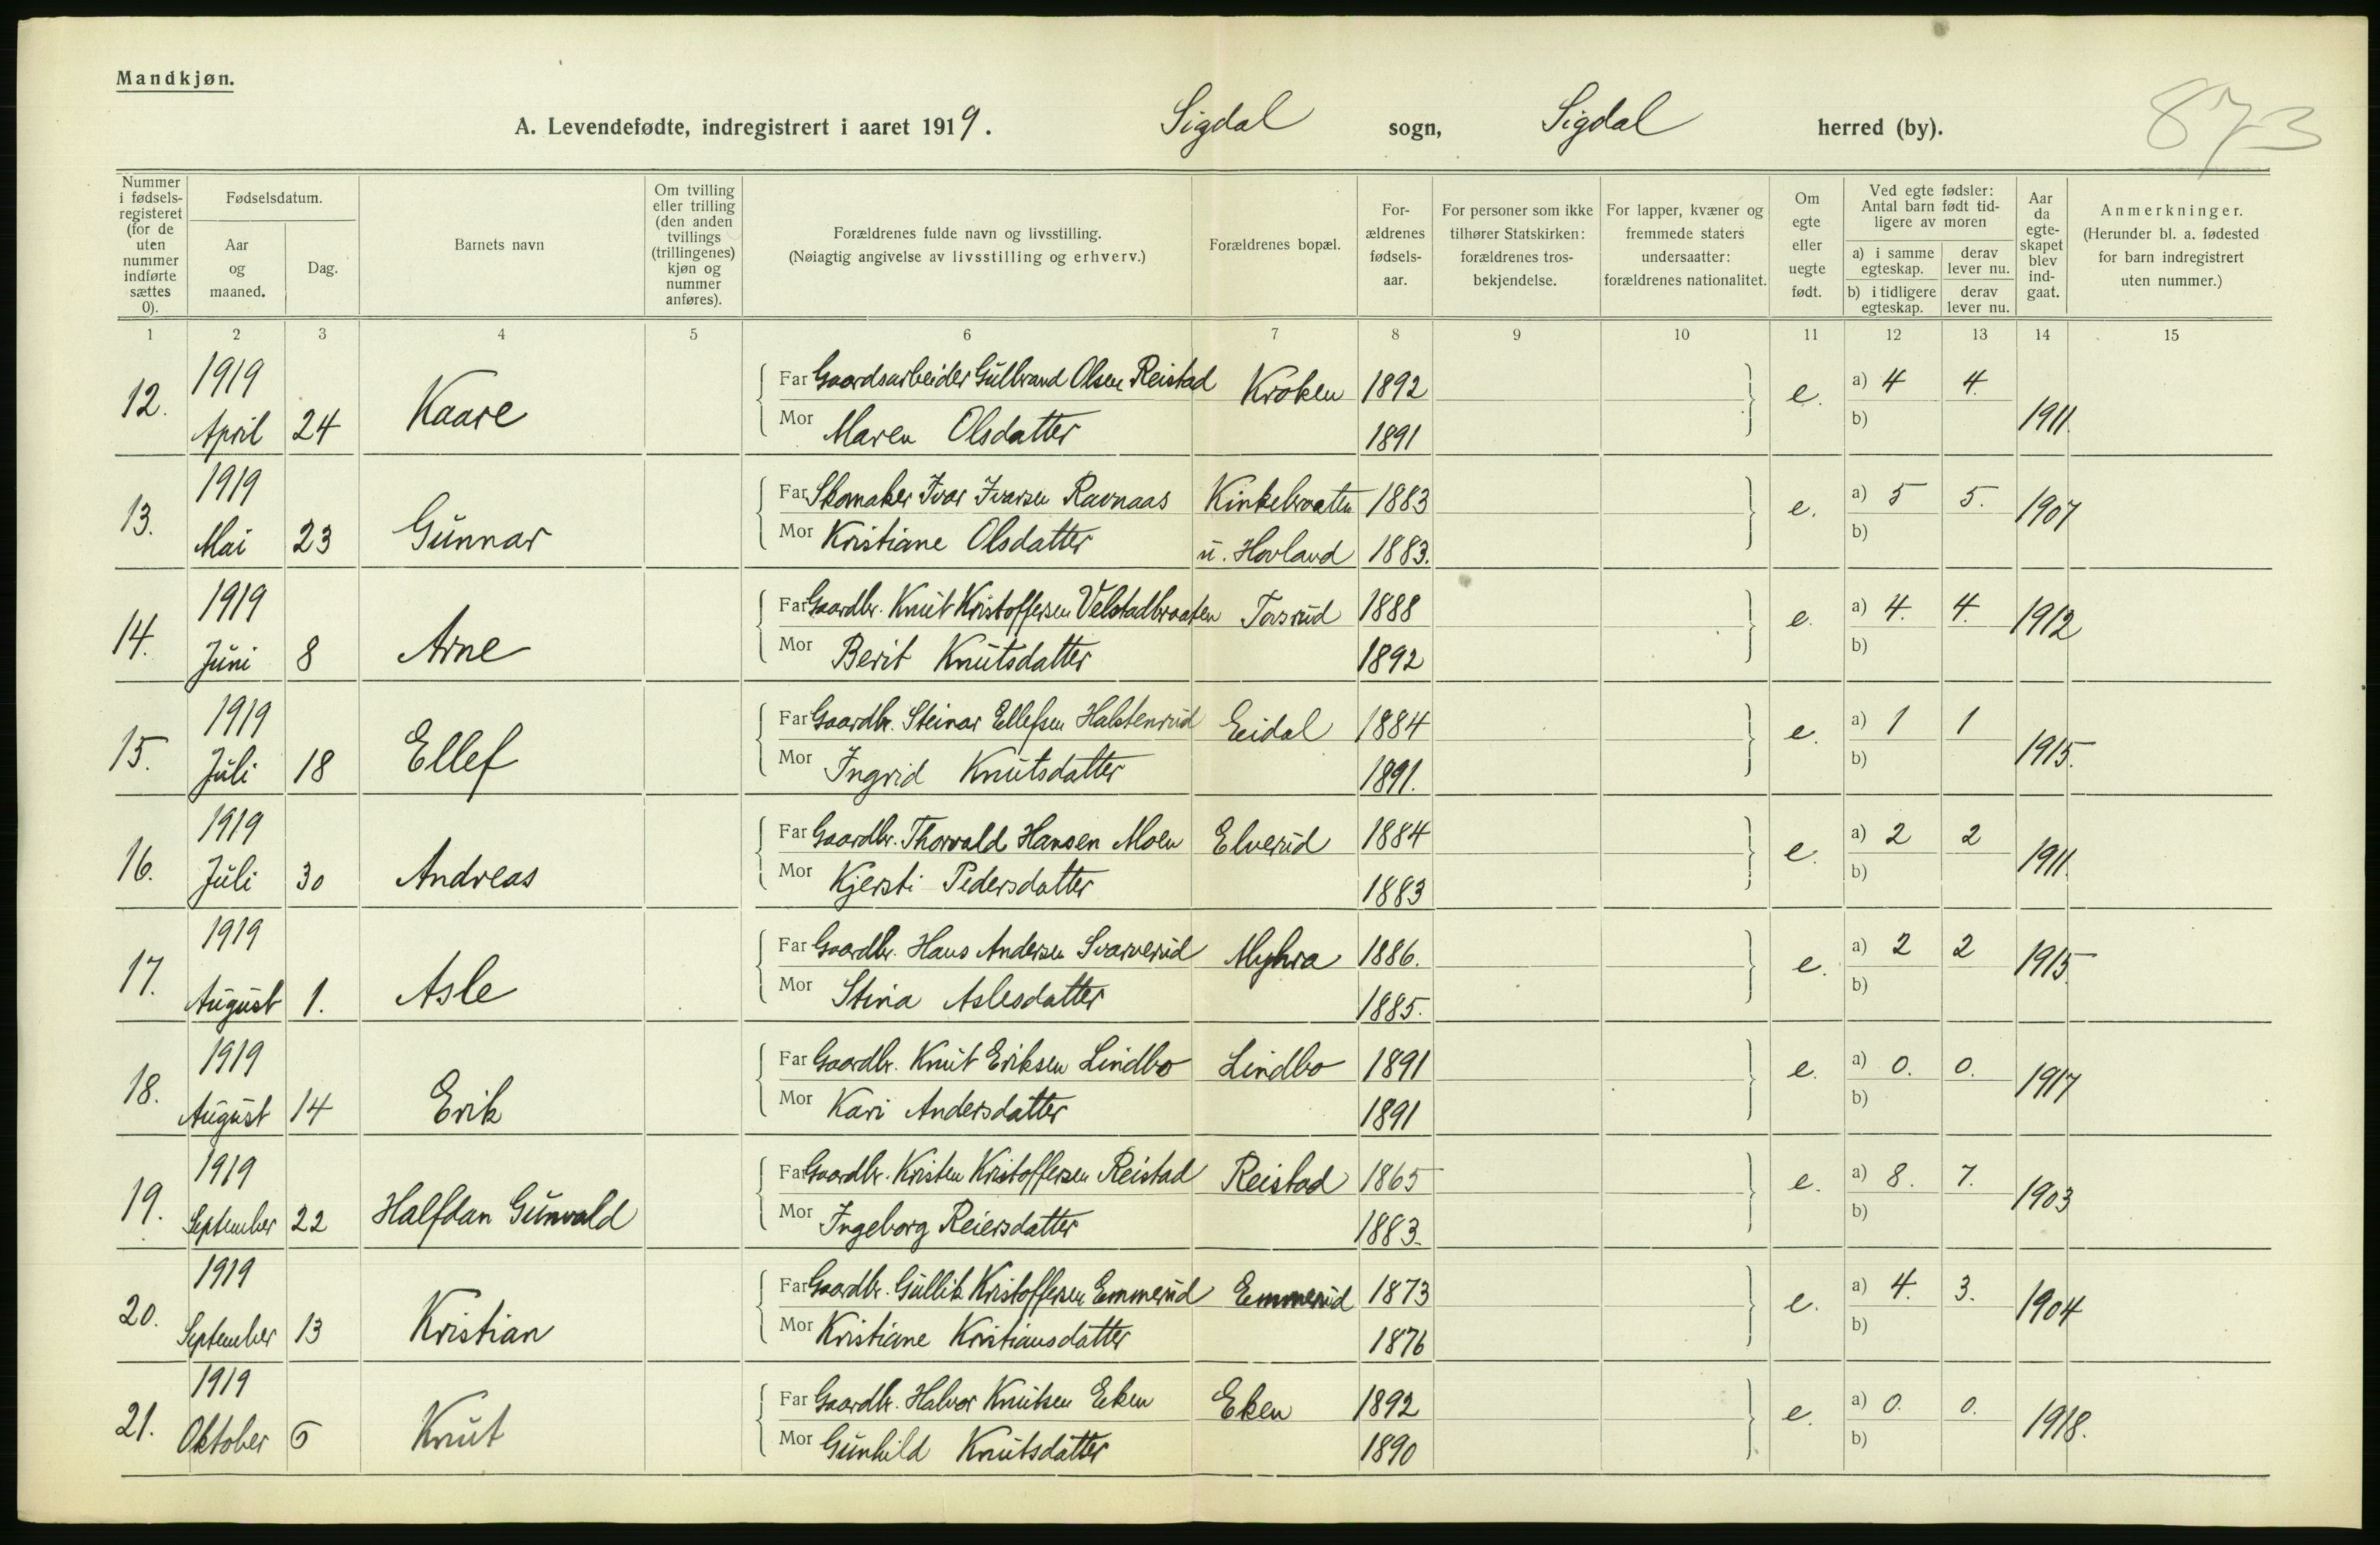 Mandkjøn.
A. Levendefødte, indregistrert i aaret 1919. Sigdal sogn, Sigdal herred (by). 873
Nummer i fødselsregisteret (for de uten nummer indførte sættes 0).
Fødselsdatum.
Aar og maaned.
Dag.
Barnets navn
Om tvilling eller trilling (den anden tvillings (trillingenes) kjøn og nummer anføres).
Forældrenes fulde navn og livsstilling.
(Nøiagtig angivelse av livsstilling og erhverv.)
Forældrenes bopæl.
For-ældrenes fødsels-aar.
For personer som ikke tilhører Statskirken: forældrenes tros-bekjendelse.
For lapper, kvæner og fremmede staters undersaatter: forældrenes nationalitet.
Om egte eller uegte født.
Ved egte fødsler: Antal barn født tid-ligere av moren
a) i samme egteskap. derav lever nu.
b) i tidligere egteskap. derav lever nu.
Aar da egte-skapet blev ind-gaat.
Anmerkninger.
(Herunder bl. a. fødested for barn indregistrert uten nummer.)
1 2 3 4 5 6 7 8 9 10 11 12 13 14 15
12. 1919 April 24 Kaare Far Gaardsarbeider Gulbrand Olsen Reistad Kroken 1892 e. a) 4 4. 1911.
Mor Maren Olsdatter 1891 b)
13. 1919 Mai 23 Gunnar Far Skomaker Ivar Ivarsen Ravnaas Kinkebraaten 1883 e. a) 5 5. 1907
Mor Kristiane Olsdatter u. Hovland 1883. b)
14. 1919 Juni 8 Arne Far Gaardbr. Knut Kristoffersen Velstadbraaten Tovsrud 1888 e. a) 4. 4. 1912
Mor Berit Knutsdatter 1892 b)
15. 1919 Juli 18 Ellef Far Gaardbr. Steinar Ellefsen Halstenrud Eidal 1884 e. a) 1 1 1915.
Mor Ingrid Knutsdatter 1891. b)
16. 1919 Juli 30 Andreas Far Gaardbr. Thorvald Hansen Moen Elverud 1884 e. a) 2 2 1911.
Mor Kjersti Pedersdatter 1883 b)
17. 1919 August 1. Asle Far Gaardbr. Hans Andersen Svarverud Myhra 1886. e. a) 2 2 1915.
Mor Stina Aslesdatter 1885. b)
18. 1919 August 14 Erik Far Gaardbr. Knut Eriksen Lindbo Lindbo 1891 e. a) 0. 0. 1917
Mor Kari Andersdatter 1891 b)
19. 1919 September 22 Halfdan Gunvald Far Gaardbr. Kristen Kristoffersen Reistad Reistad 1865 e. a) 8. 7. 1903
Mor Ingeborg Reiersdatter 1883. b)
20. 1919 September 13 Kristian Far Gaardbr. Gullik Kristoffersen Emmerud Emmerud 1873 e. a) 4. 3. 1904
Mor Kristiane Kristiansdatter 1876 b)
21. 1919 Oktober 6 Knut Far Gaardbr. Halvor Knutsen Eken Eken 1892 e. a) 0. 0. 1918.
Mor Gunhild Knutsdatter 1890 b)